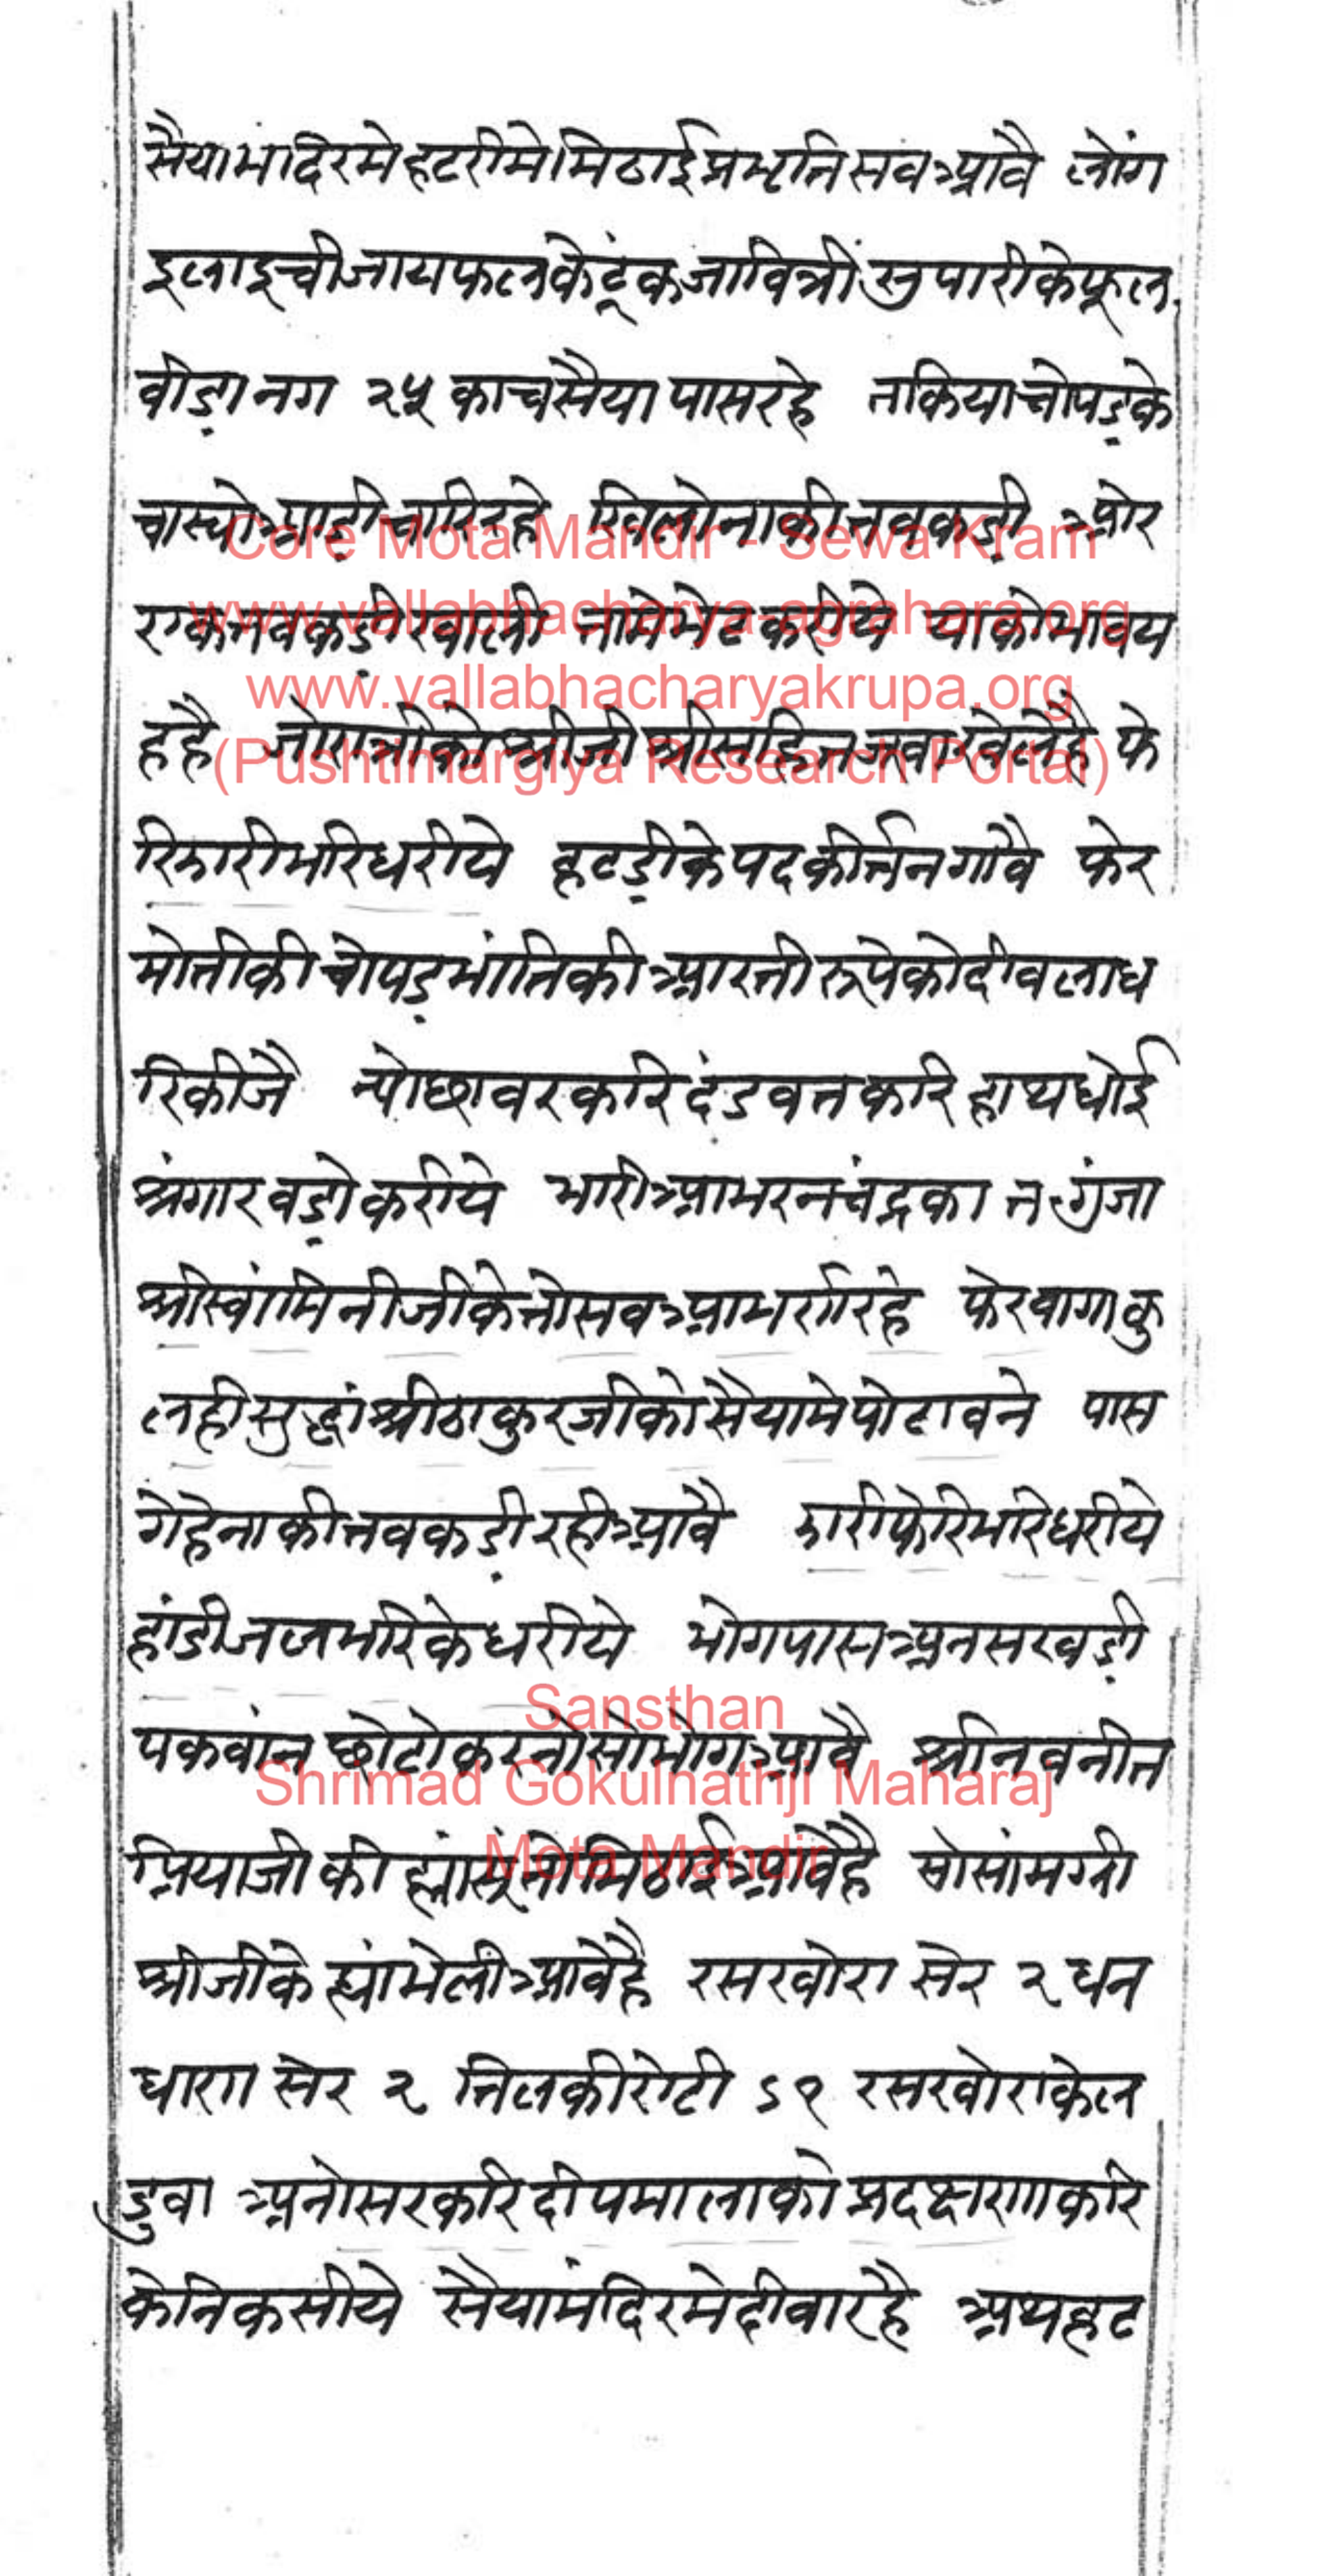 सैयामंदिरमे हटरीमे मिठाई प्रभृति सब आवै लोंग
इलाइची जायफलके टूंक जावित्रीं सुपारीके फूल
बीड़ा नग २५ काच सैया पास रहे तकिया चोपड़के
चास्यो आड़ी चारि रहे खिलोनाकी तबकड़ी ओर
एक तबकड़ी खाली तामे भेट करीये याको भाव य
ह है चोपड़ श्रीजी है फे
रि झारी भरि धरीये हटड़ीके पद कीर्त्तन गावै फेर
मोतीकी चोपड़ भांतिकी आरती रूपेको दीवला ध
रि कीजै न्योछावर करि दंडवत करि हाथ धोई
श्रंगार बड़ो करीये भारी आभरन चंद्रका त गुंजा
श्रीस्वांमिनीजीके तो सब आभर्ण रहे फेर वागा कु
लही सुद्धां श्रीठाकुरजीको सैयामे पोढावने पास
गेहेनाकी तबकड़ी रही आवै झारी फेरि भरि धरीये
हांडी जल भरिके धरीये भोग पास अनसखड़ी
पकवांन छोटो करनो सो भोग आवै श्रीनवनीत
प्रियाजीकी ह्यांसूं जो मिठाई आवै है सो सांमग्री
श्रीजीके ह्यां भेली आवे है रसखोरा सेर २ घन
धारा सेर २ तिलकी रोटी ऽ१ रसखोराके ल
डुवा अनोसर करि दीपमालाको प्रदक्षणा करि
के निकसीये सैयामंदिरमे दीवा रहै अथ हट
Core Mota Mandir - Sewa Kram
www.vallabhacharya-agrahara.org
www.vallabhacharyakrupa.org
(Pushtimargiya Research Portal)
Sansthan
Shrimad Gokulnathji Maharaj
Mota Mandir